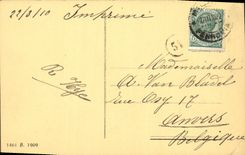 22/3/10 Imprimé
Mademoiselle
A. Van Bladel
Rue Osy 17
Anvers
Belgique
1461 B. 1909